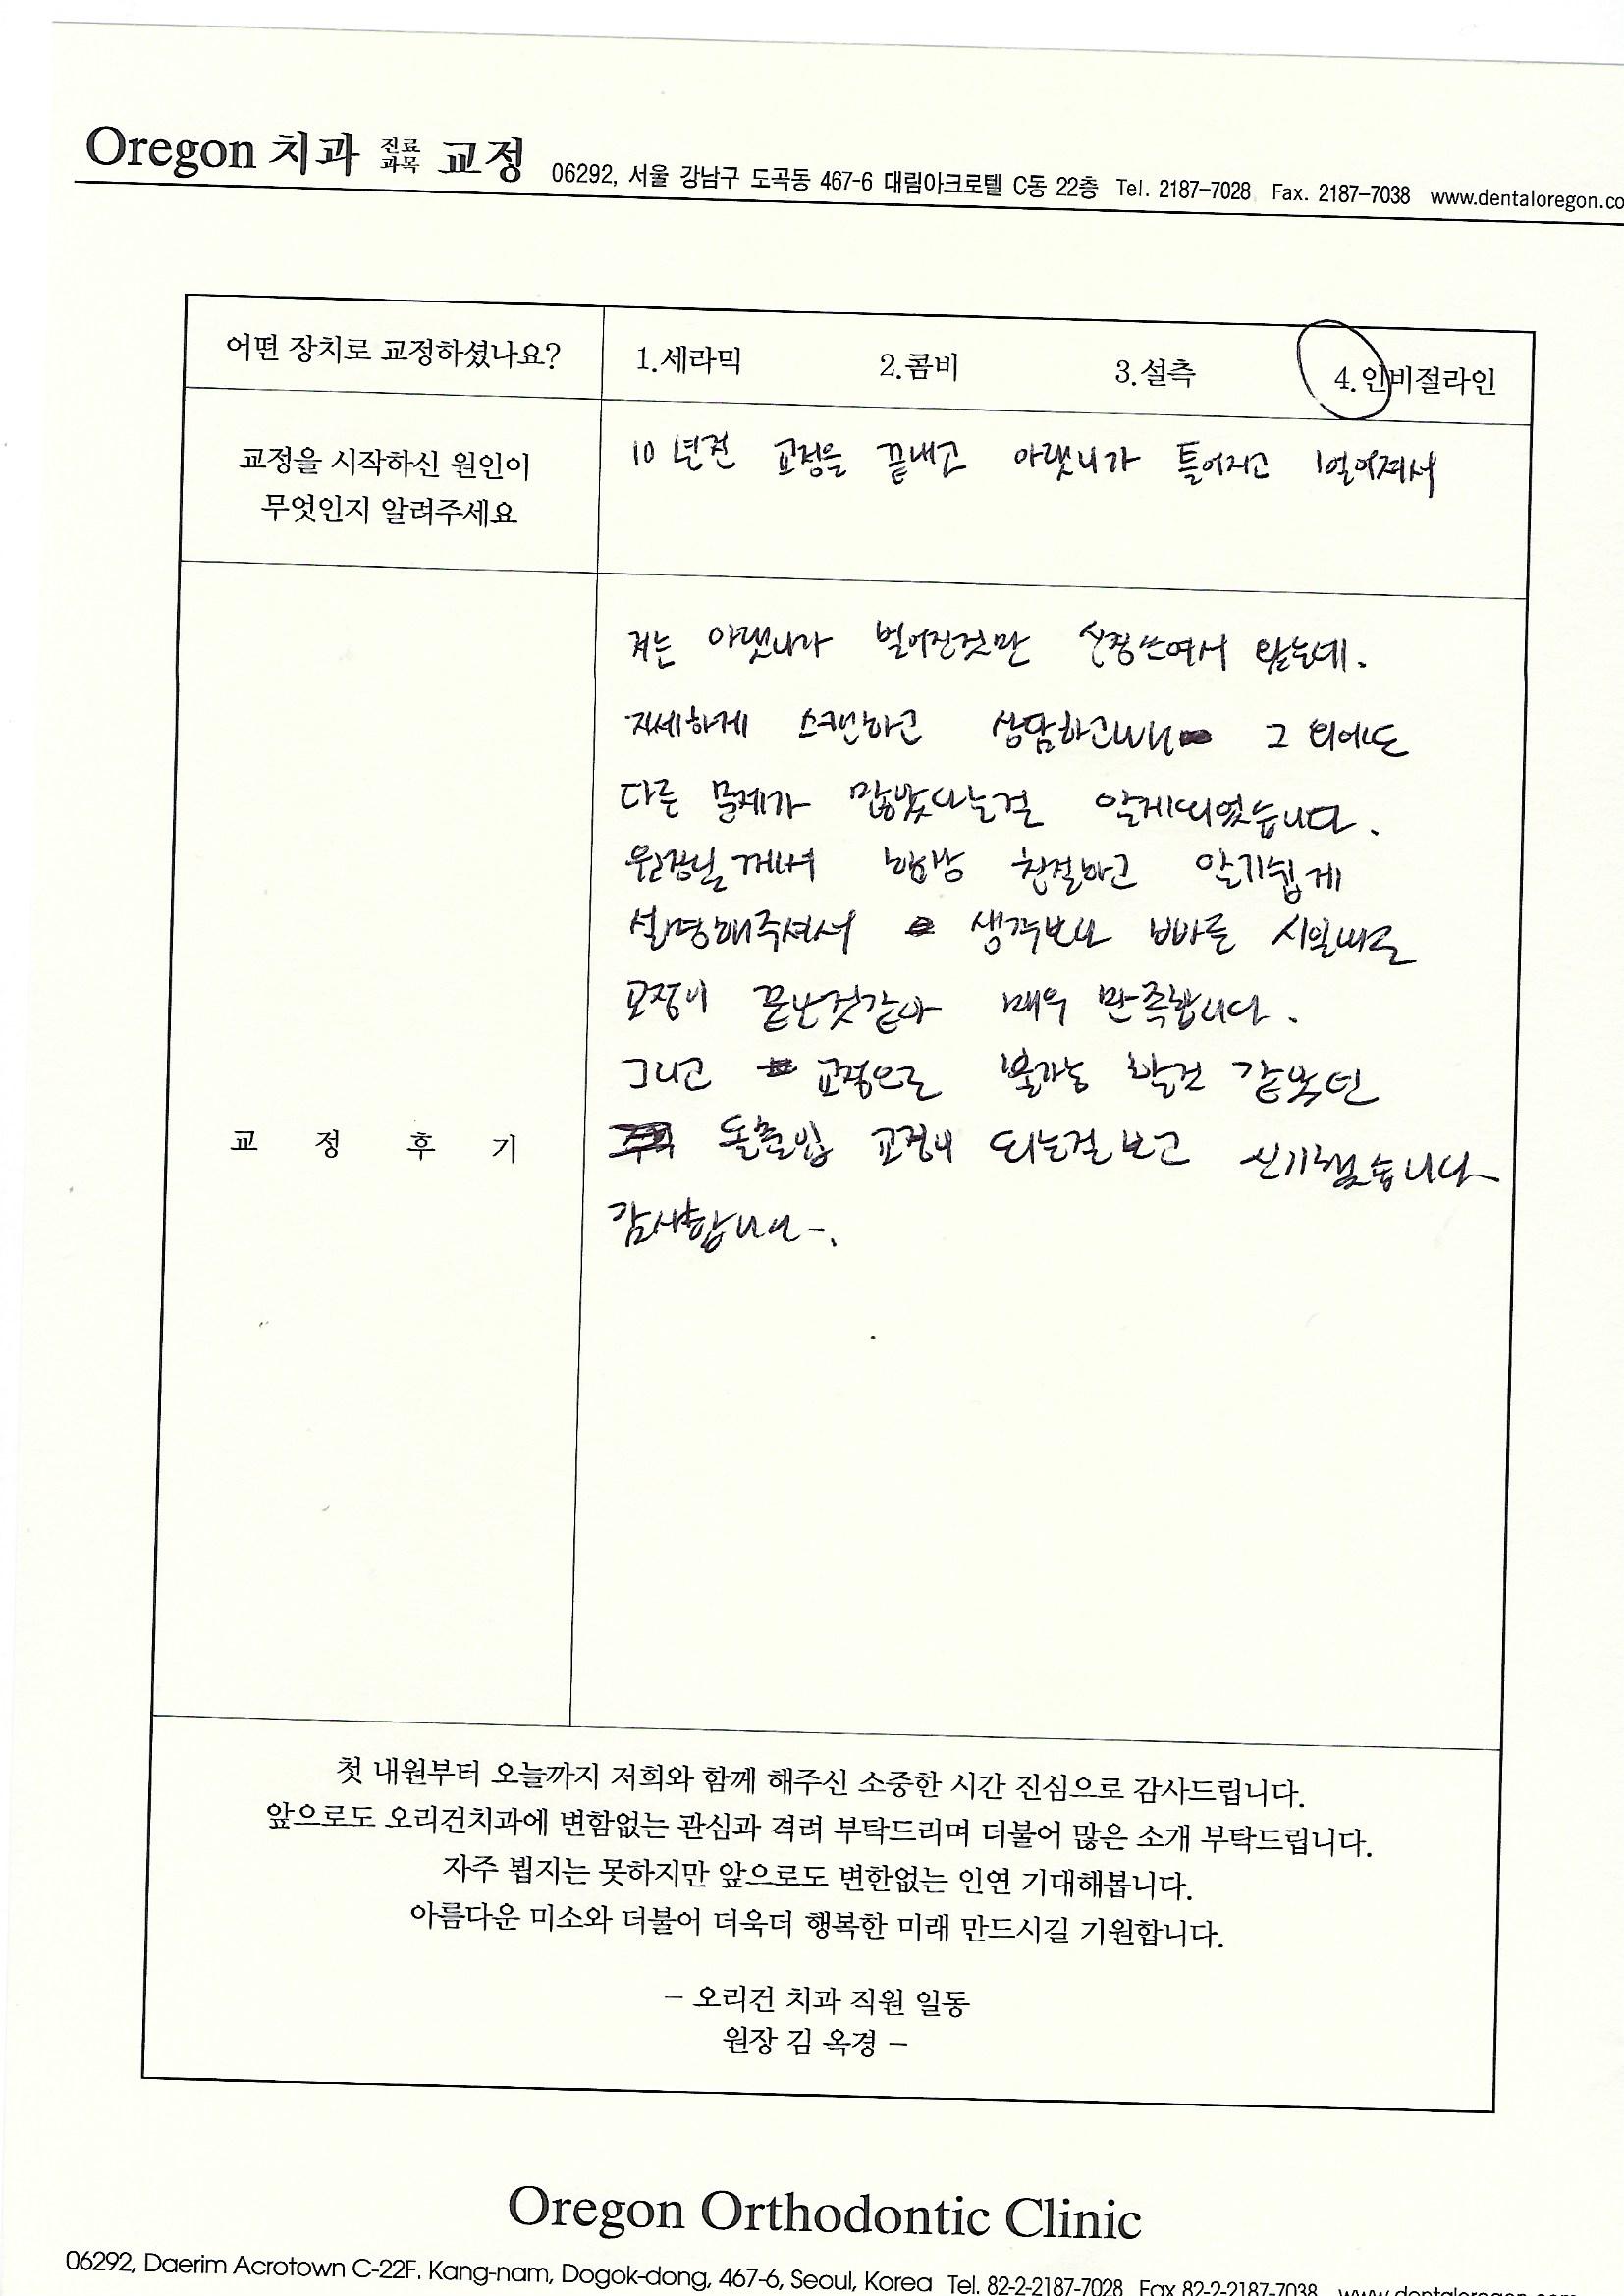 Oregon 치과 진료과목 교정 06292, 서울 강남구 도곡동 467-6 대림아크로텔 C동 22층 Tel. 2187-7028 Fax. 2187-7038 www.dentaloregon.co
어떤 장치로 교정하셨나요? 1.세라믹 2.콤비 3.설측 4.인비절라인
교정을 시작하신 원인이
무엇인지 알려주세요
10년전 교정을 끝내고 아랫니가 틀어지고 벌어져서
교 정 후 기
저는 아랫니가 벌어진것만 신경쓰여서 왔는데.
자세하게 스캔하고 상담하고나니 그 외에도
다른 문제가 많았다는걸 알게되었습니다.
원장님께서 항상 친절하고 알기쉽게
설명해주셔서 생각보다 빠른 시일내로
교정이 끝난것같아 매우 만족합니다.
그리고 교정으로 불가능 할것 같았던
돌출입 교정이 되는걸보고 신기했습니다
감사합니다-.
첫 내원부터 오늘까지 저희와 함께 해주신 소중한 시간 진심으로 감사드립니다.
앞으로도 오리건치과에 변함없는 관심과 격려 부탁드리며 더불어 많은 소개 부탁드립니다.
자주 뵙지는 못하지만 앞으로도 변한없는 인연 기대해봅니다.
아름다운 미소와 더불어 더욱더 행복한 미래 만드시길 기원합니다.
- 오리건 치과 직원 일동
원장 김 옥경 -
Oregon Orthodontic Clinic
06292, Daerim Acrotown C-22F. Kang-nam, Dogok-dong, 467-6, Seoul, Korea Tel. 82-2-2187-7028 Fax 82-2-2187-7038 www.dentaloregon.com